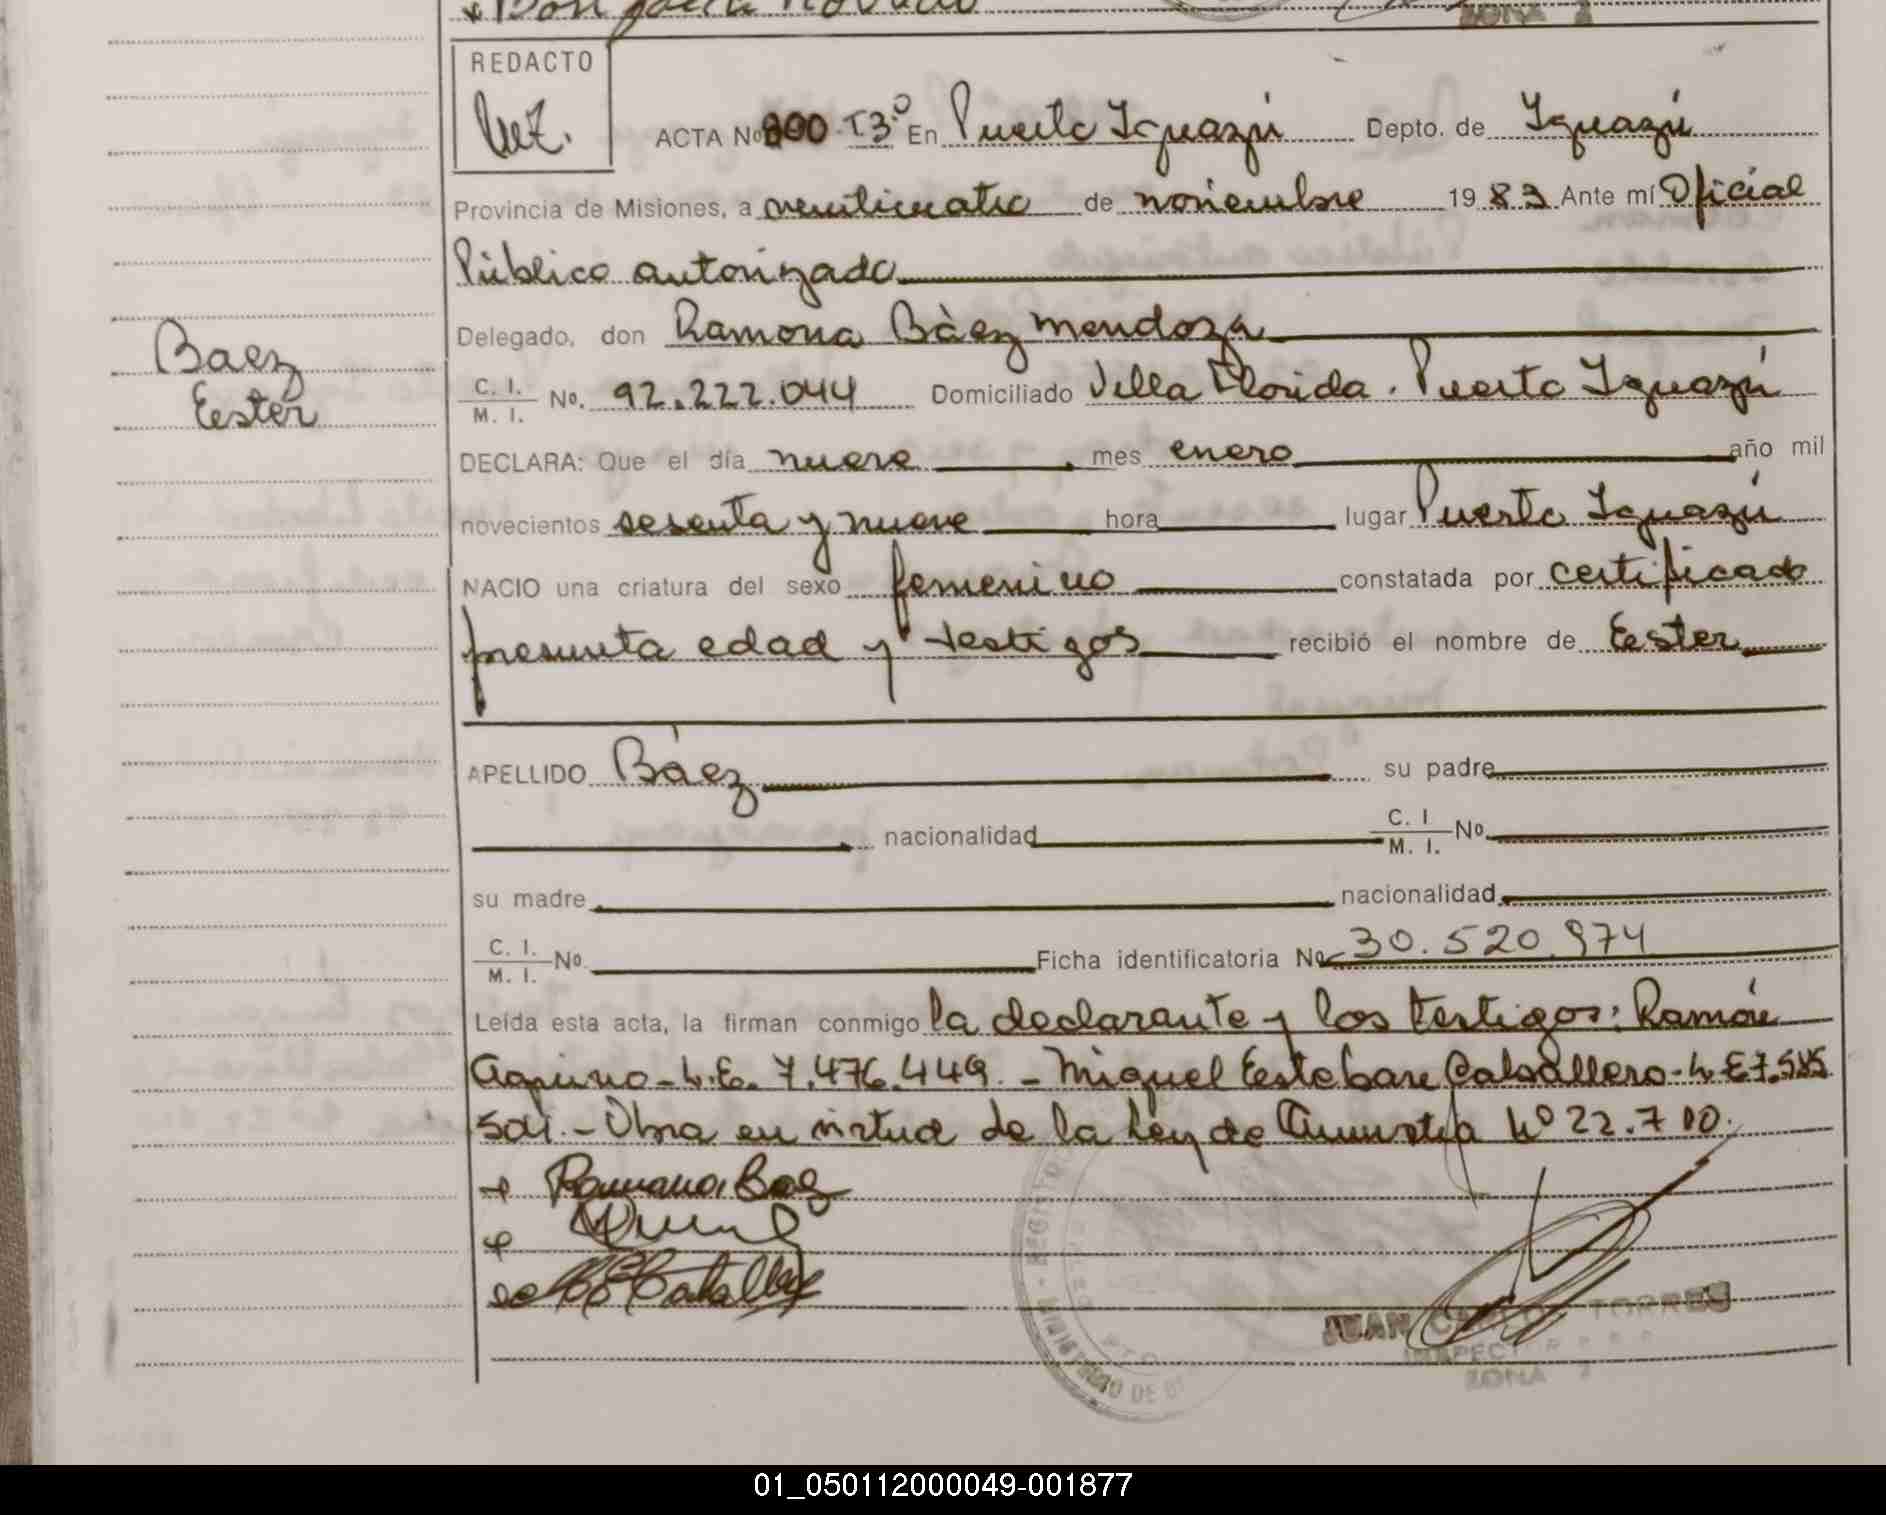 REDACTO
ACTA Nº 200 T3.º En Puerto Iguazú Depto. de Iguazú
Provincia de Misiones, a veinticuatro de noviembre 1983 Ante mí Oficial
Público autorizado
Delegado, don Ramona Báez Mendoza
C. I. / M. I. No. 92.222.044 Domiciliado Villa Florida. Puerto Iguazú
Baez
Ester
DECLARA: Que el día nueve, mes enero año mil
novecientos sesenta y nueve hora lugar Puerto Iguazú
NACIO una criatura del sexo femenino constatada por certificado
presunta edad y testigos recibió el nombre de Ester
APELLIDO Báez su padre
nacionalidad C. I / M. I. Nº
su madre nacionalidad
C. I. / M. I. Nº Ficha identificatoria Nº 30.520.974
Leída esta acta, la firman conmigo la declarante y los testigos: Ramón
Aquino - L.E. 7.476.449 - Miguel Esteban Caballero - L.E 7.585
504. - Obra en virtud de la Ley de Amnistía Nº 22.700.
Ramona Baez
JUAN CARLOS TORRES
INSPECTOR
ZONA 2
01_050112000049-001877